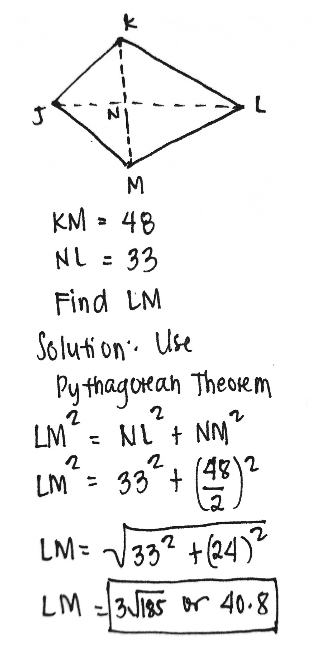 K
J
N
L
M
KM = 48
NL = 33
Find LM
Solution: Use
Pythagorean Theorem
LM² = NL² + NM²
LM² = 33² + (48/2)²
LM = √33² + (24)²
LM = 3√185 or 40.8